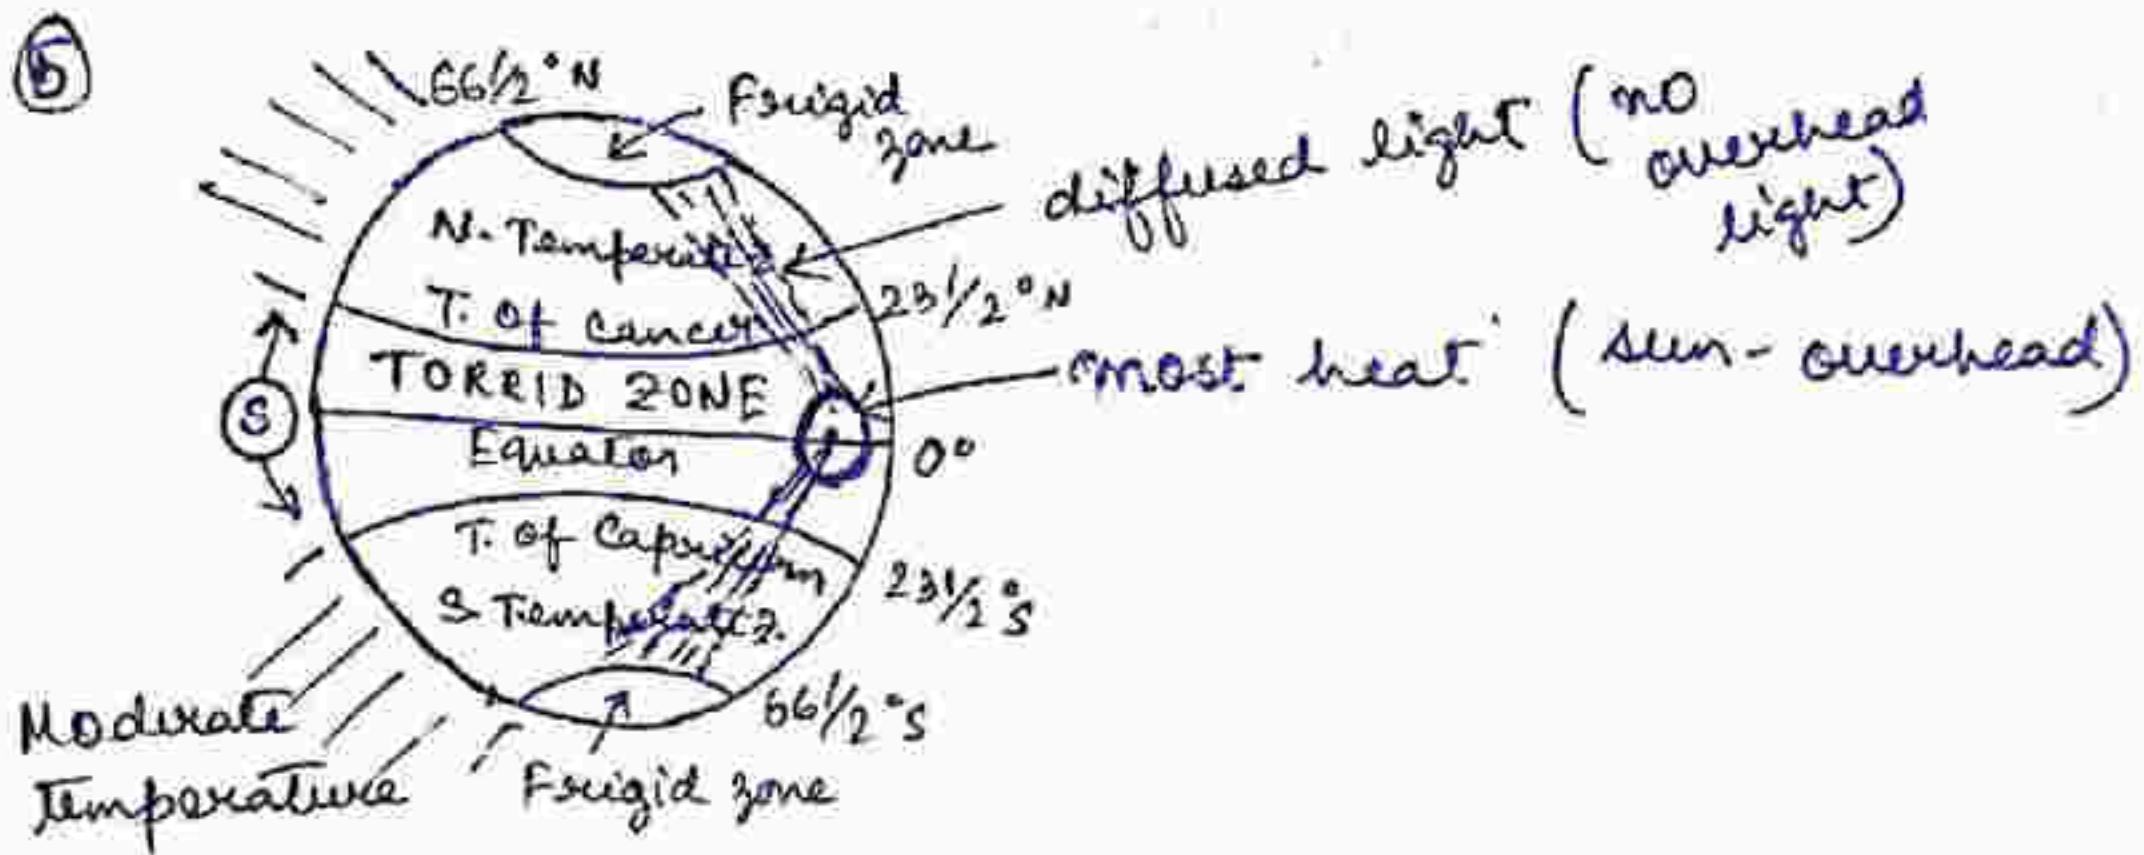 5
66 1/2° N
Frigid
zone
diffused light (no
overhead
light)
N. Temperate
23 1/2° N
T. of Cancer
TORRID ZONE
most heat (sun-overhead)
S
Equator
0°
T. of Capricorn
23 1/2° S
S. Temperate z.
66 1/2° S
Moderate
temperature
Frigid zone